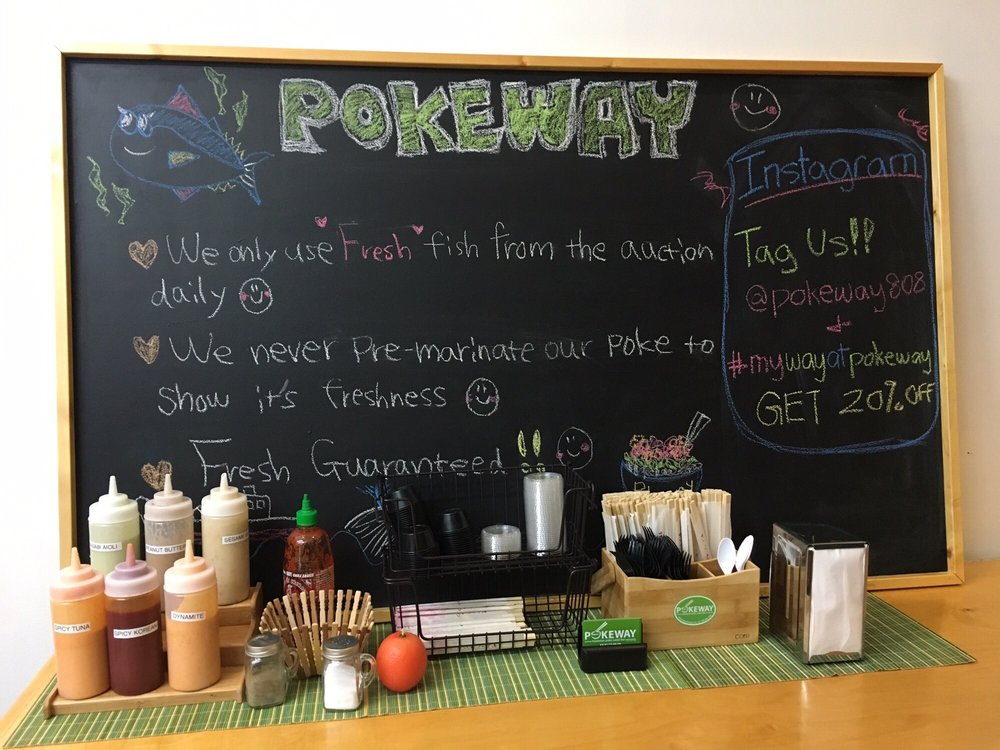 POKEWAY
We only use Fresh fish from the auction
daily
We never pre-marinate our poke to
show it's freshness
Fresh Guaranteed !!
Instagram
Tag Us!!
@pokeway808
+
#mywayatpokeway
GET 20% OFF
PEANUT BUTTER
SESAME
SPICY TUNA
SPICY KOREAN
DYNAMITE
POKEWAY
POKEWAY